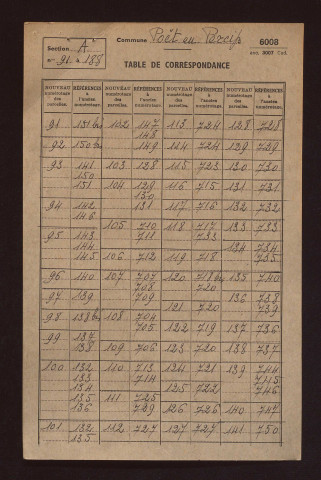 Section A.
n° 91 à 188
Commune Poët en Percip
6008
anc. 3007 Cad
TABLE DE CORRESPONDANCE
NOUVEAU numérotage des parcelles. RÉFÉRENCES à l'ancien numérotage NOUVEAU numérotage des parcelles. RÉFÉRENCES à l'ancien numérotage NOUVEAU numérotage des parcelles. RÉFÉRENCES à l'ancien numérotage NOUVEAU numérotage des parcelles. RÉFÉRENCES à l'ancien numérotage
91 151 bis 102 147 113 724 128 728
148
92 150 bis 149 114 724 129 729
93 141 103 128 115 723 130 730
150
151 104 129 116 715 131 731
130
94 142 131 117 716 132 732
146
105 710 118 717 133 733
95 143 718 733
144 134 734
145 106 712 119 718 735
96 140 107 707 120 718 bis 135 740
708 720
97 139 709 136 738
121 720 739
98 138 bis 108 704
705 122 719 137 736
99 137
138 109 706 123 720 138 737
100 132 110 713 124 721 139 744
133 714 745
134 125 722 746
135 111 725
136 729 126 726 140 747
101 132 112 727 127 727 141 750
135